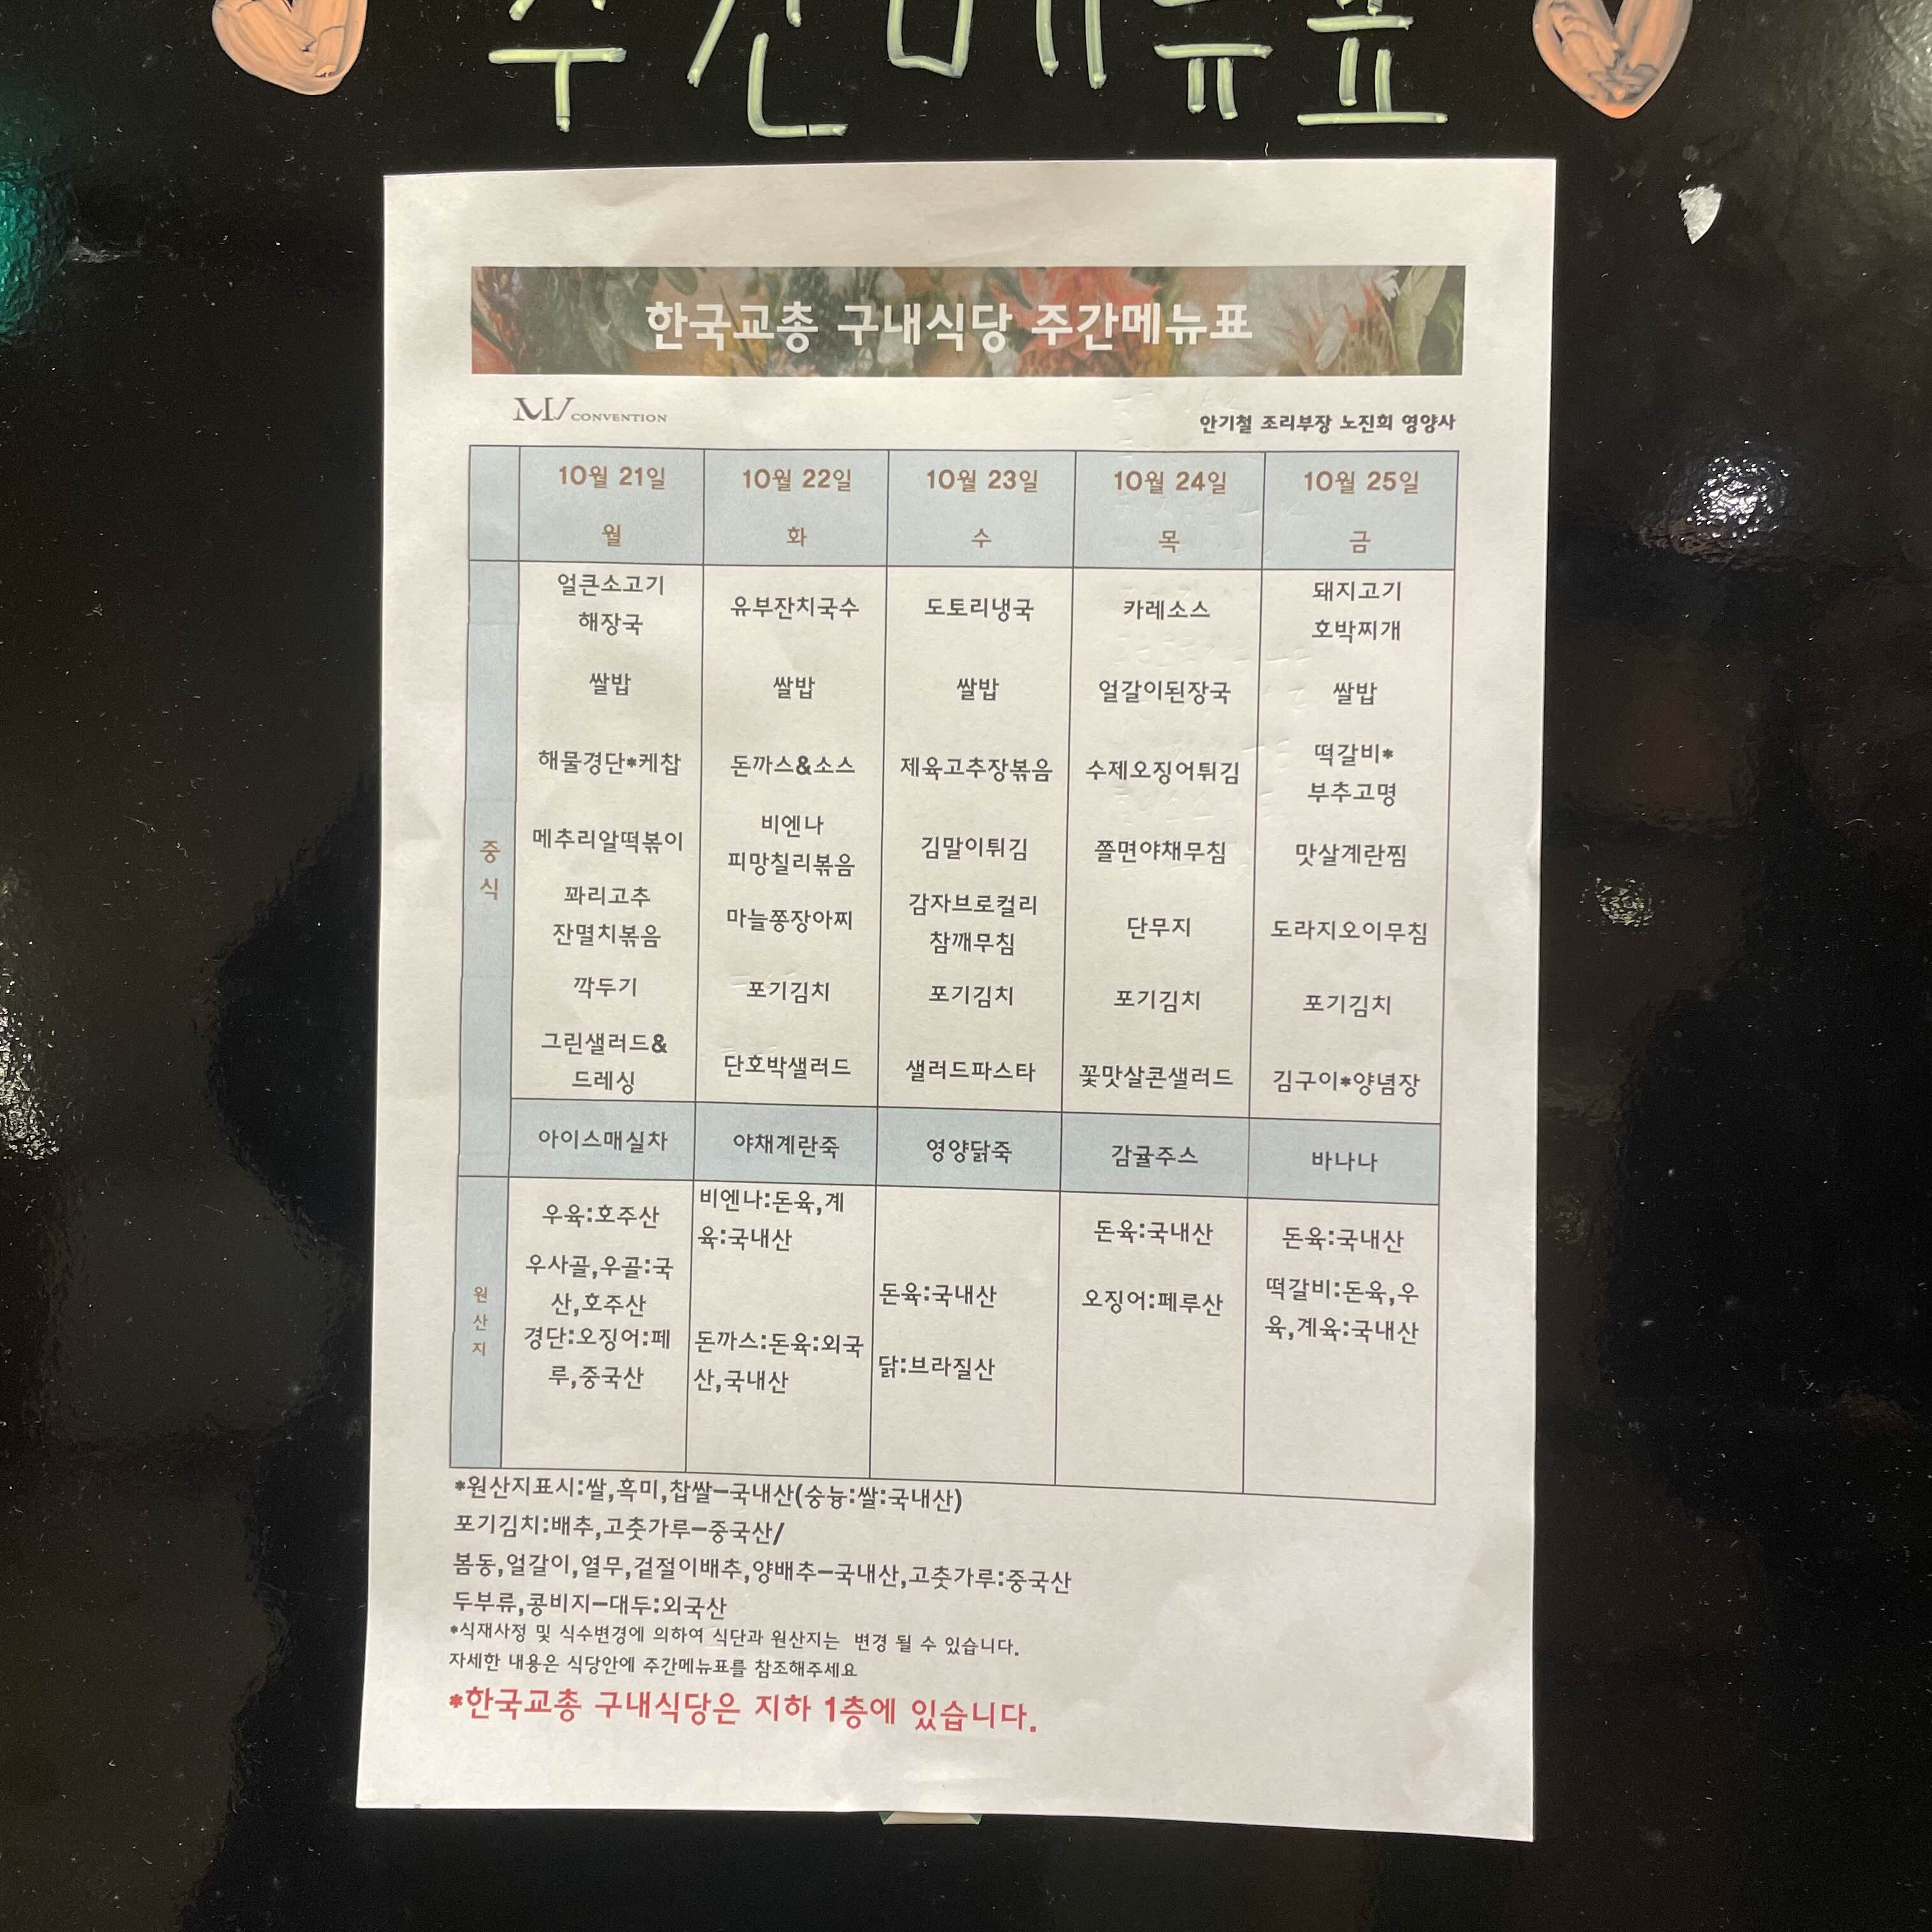 주간메뉴표
한국교총 구내식당 주간메뉴표
MV CONVENTION
안기철 조리부장 노진희 영양사
10월 21일 10월 22일 10월 23일 10월 24일 10월 25일
월 화 수 목 금
중
식
얼큰소고기
해장국
유부잔치국수
도토리냉국
카레소스
돼지고기
호박찌개
쌀밥 쌀밥 쌀밥 얼갈이된장국 쌀밥
해물경단*케찹
돈까스&소스
제육고추장볶음
수제오징어튀김
떡갈비*
부추고명
메추리알떡볶이
비엔나
피망칠리볶음
김말이튀김
쫄면야채무침
맛살계란찜
꽈리고추
잔멸치볶음
마늘쫑장아찌
감자브로컬리
참깨무침
단무지
도라지오이무침
깍두기 포기김치 포기김치 포기김치 포기김치
그린샐러드&
드레싱
단호박샐러드
샐러드파스타
꽃맛살콘샐러드
김구이*양념장
아이스매실차 야채계란죽 영양닭죽 감귤주스 바나나
원
산
지
우육:호주산
우사골,우골:국
산,호주산
경단:오징어:페
루,중국산
비엔나:돈육,계
육:국내산
돈까스:돈육:외국
산,국내산
돈육:국내산
닭:브라질산
돈육:국내산
오징어:페루산
돈육:국내산
떡갈비:돈육,우
육,계육:국내산
*원산지표시:쌀,흑미,찹쌀-국내산(숭늉:쌀:국내산)
포기김치:배추,고춧가루-중국산/
봄동,얼갈이,열무,겉절이배추,양배추-국내산,고춧가루:중국산
두부류,콩비지-대두:외국산
*식재사정 및 식수변경에 의하여 식단과 원산지는 변경 될 수 있습니다.
자세한 내용은 식당안에 주간메뉴표를 참조해주세요
*한국교총 구내식당은 지하 1층에 있습니다.